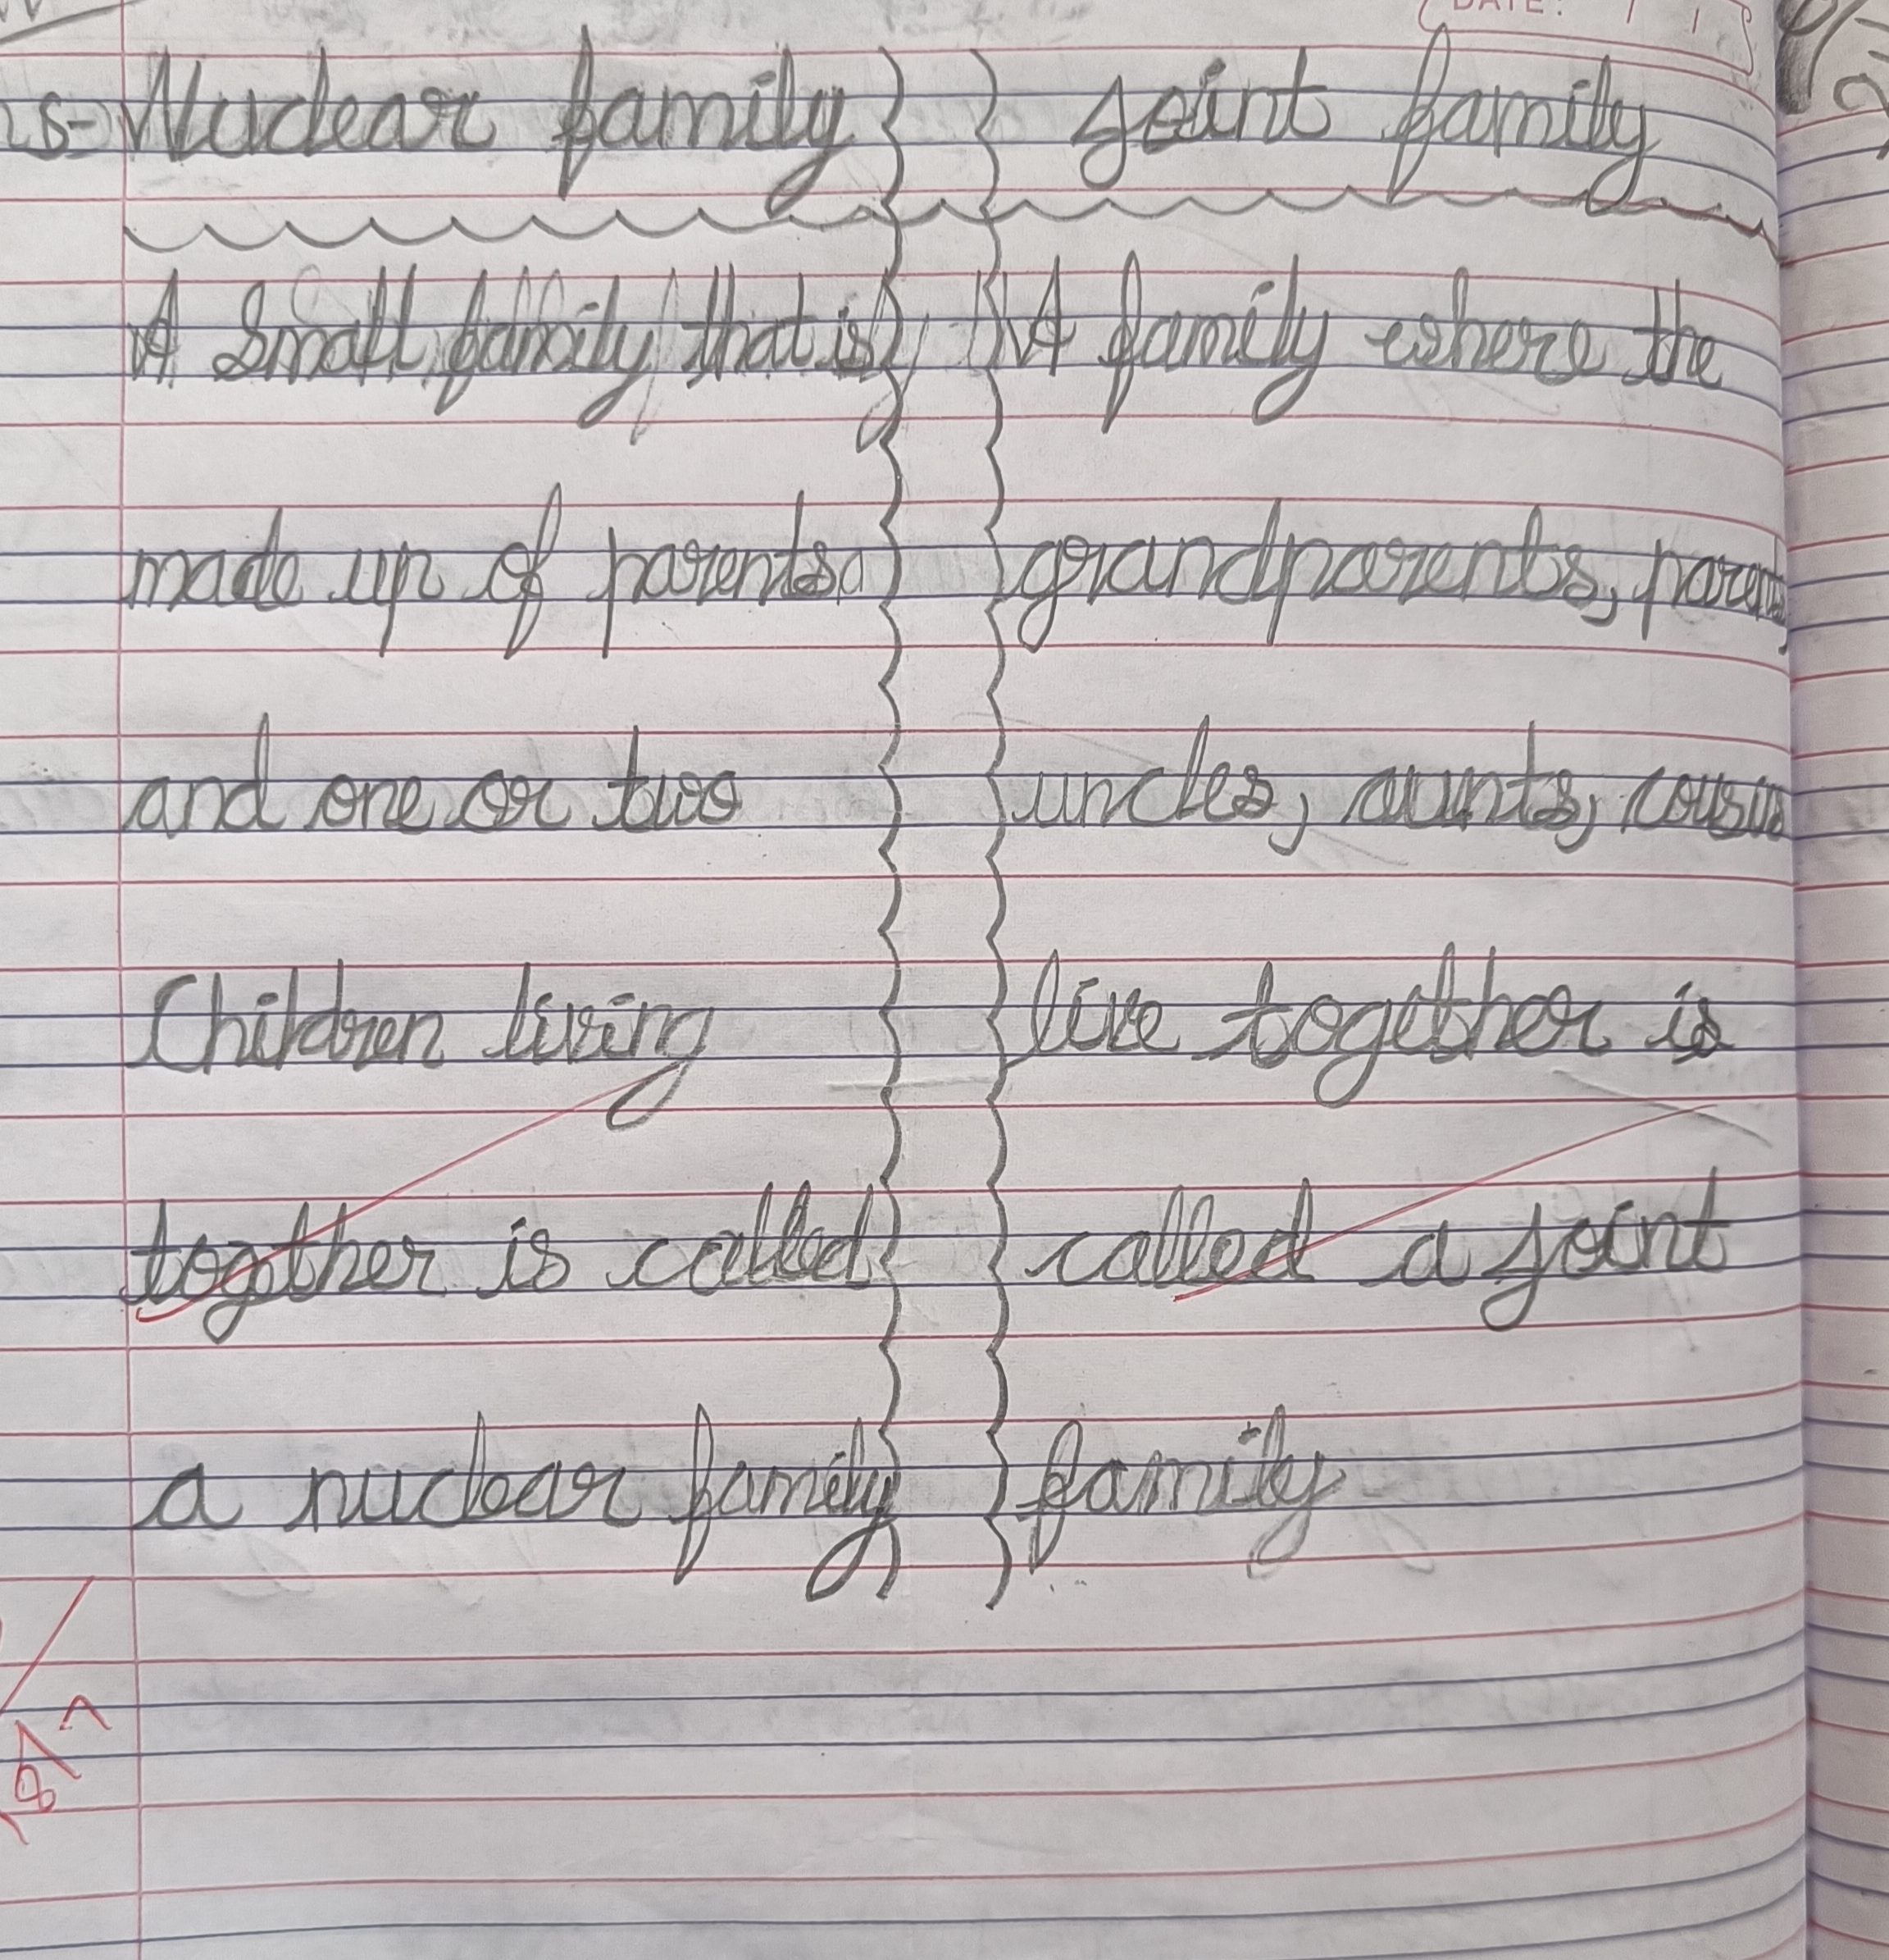 DATE: / /
ns- Nuclear family
A Small family that is
made up of parents
and one or two
Children living
together is called
a nuclear family
Joint family
A family where the
grandparents, parents,
uncles, aunts, cousins
live together is
called a joint
family